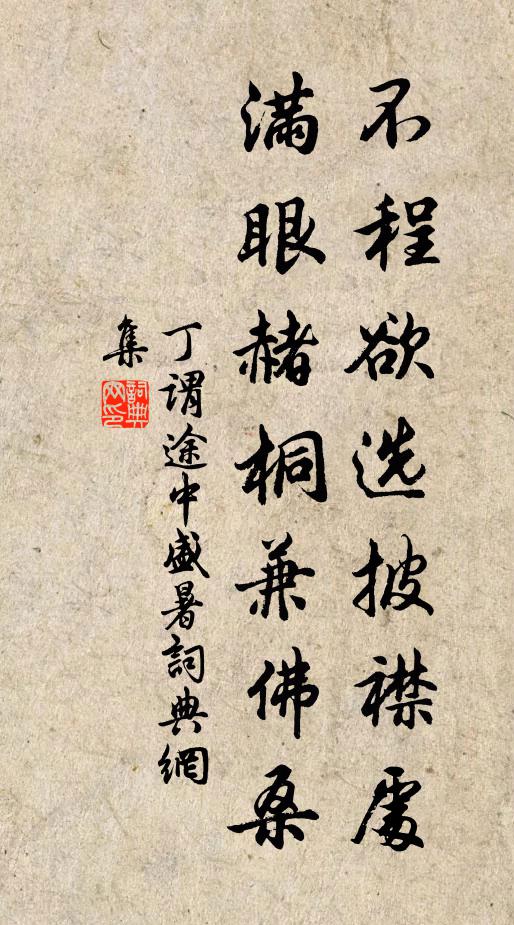 不程欲选披襟处
满眼赭桐兼佛桑
丁谓途中盛暑詞典網
集
詞典網印